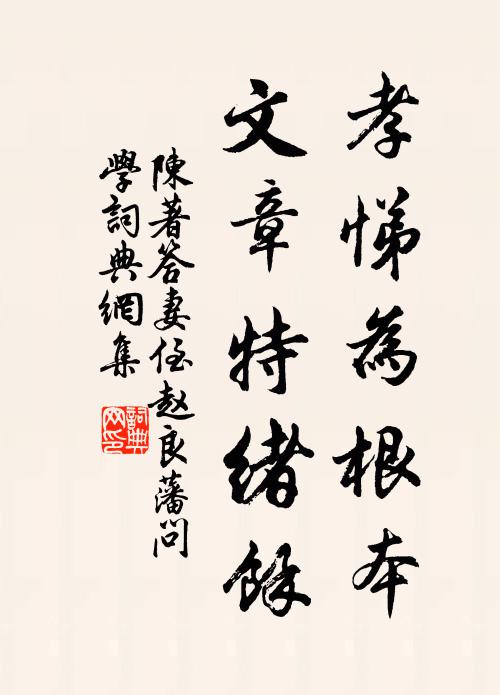 孝悌為根本
文章特緒餘
陳著答妻侄赵良藩問
學詞典網集
詞典網印